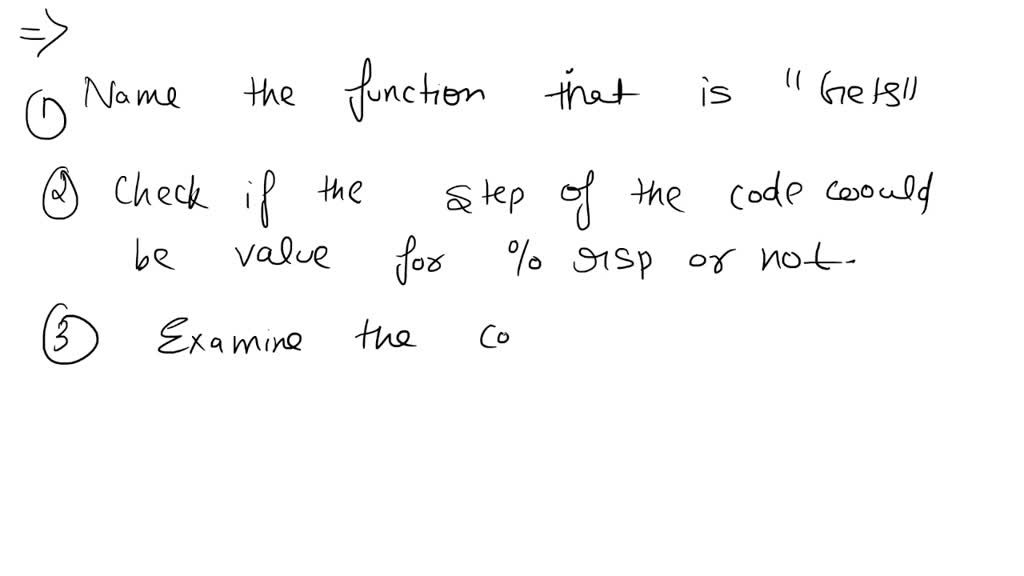 =>
① Name the function that is "Gets"
② Check if the step of the code would
be value for % rsp or not.
③ Examine the co